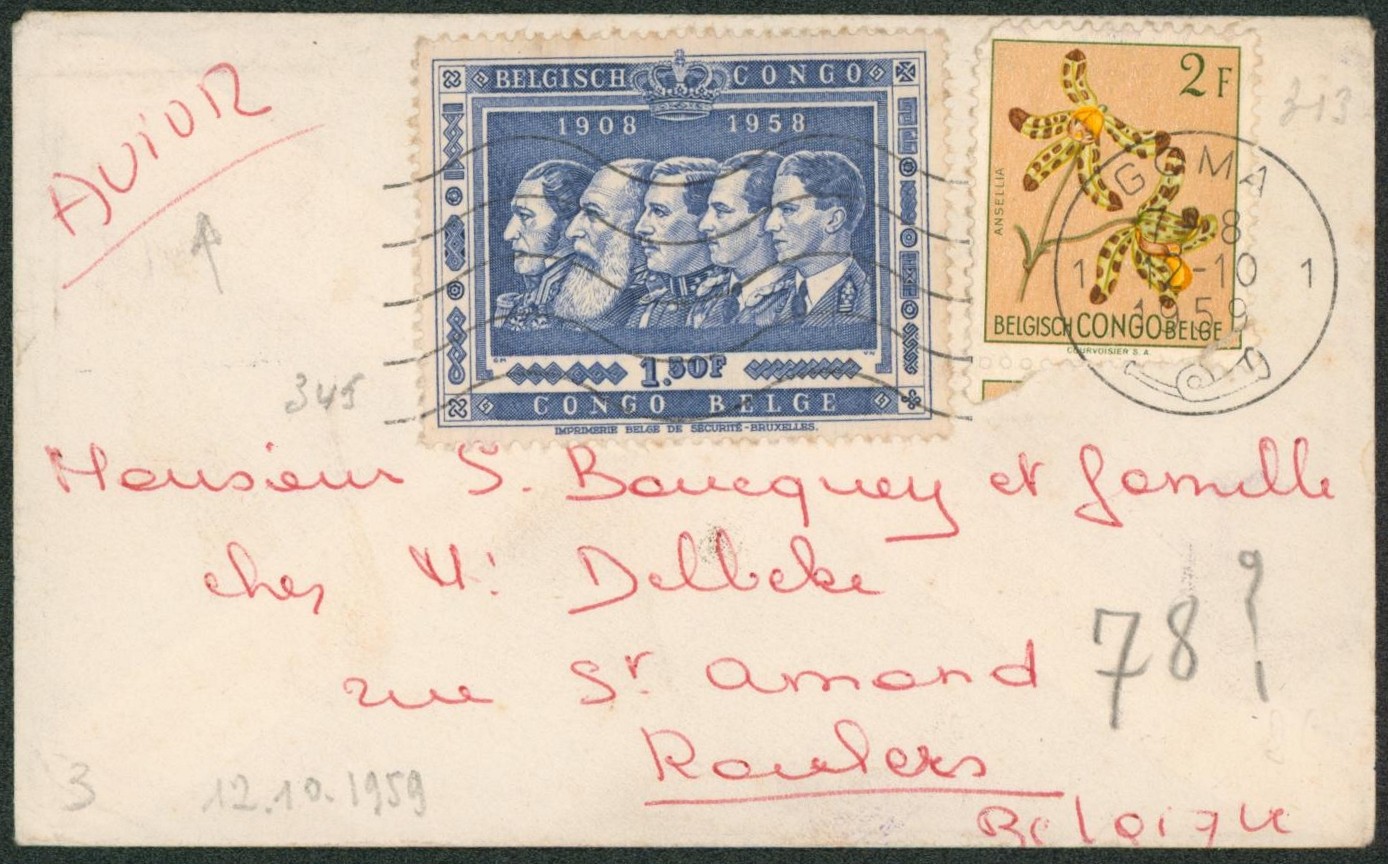 AVION
BELGISCH CONGO
1908 1958
1.50F
CONGO BELGE
IMPRIMERIE BELGE DE SÉCURITÉ-BRUXELLES.
2F
ANSELLIA
BELGISCH CONGO BELGE
COURVOISIER S.A.
GOMA
8
1 -10 1
1959
313
345
Monsieur S. Boucquey et famille
chez Mr Delbeke
rue St Amand 78?
Roulers
Belgique
3 12.10.1959